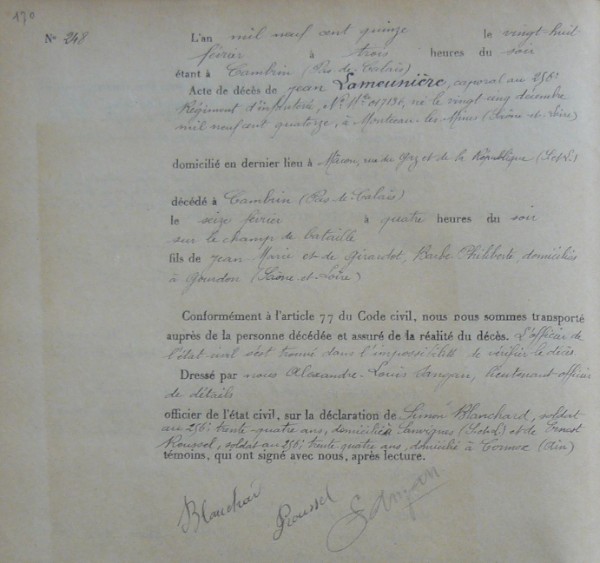 170
N° 248
L'an mil neuf cent quinze le vingt-huit
février à trois heures du soir
étant à Cambrin (Pas-de-Calais)
Acte de décès de Jean Lameunière, caporal au 256e
Régiment d'infanterie, N° Mle 017136, né le vingt cinq décembre
mil neuf cent quatorze, à Montceau-les-Mines (Saône-et-Loire)
domicilié en dernier lieu à Mâcon, rue du Gaz et de la République (S.et.L.)
décédé à Cambrin (Pas-de-Calais)
le seize février à quatre heures du soir
sur le champ de bataille
fils de Jean Marie et de Girardot, Barbe Philiberte domiciliés
à Gourdon (Saône-et-Loire)
Conformément à l'article 77 du Code civil, nous nous sommes transporté
auprès de la personne décédée et assuré de la réalité du décès. L'officier de
l'état civil s'est trouvé dans l'impossibilité de vérifier le décès
Dressé par nous Alexandre-Louis lieutenant officier
de détails
officier de l'état civil, sur la déclaration de Simon Blanchard, soldat
au 256e trente-quatre ans, domicilié à Sanvignes (S.et.L.) et de Ernest
Roussel, soldat au 256e trente quatre ans, domicilié à (Ain)
témoins, qui ont signé avec nous, après lecture.
Blanchard Roussel